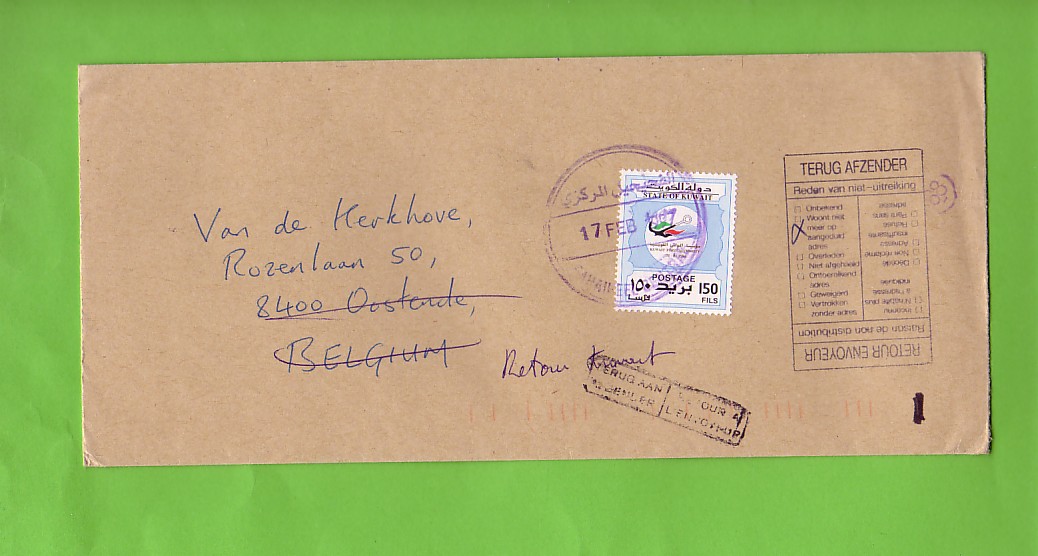 Van de Kerkhove,
Rozenlaan 50,
8400 Oostende,
BELGIUM
Retour Kuwait
17 FEB
دولة الكويت
STATE OF KUWAIT
POSTAGE
١٥٠ بريد 150
فلسا FILS
TERUG AAN
RETOUR A
TERUG AFZENDER
Reden van niet-uitreiking
Onbekend
Woont niet
meer op
aangeduid
adres
Overleden
Niet afgehaald
Ontoereikend
adres
Geweigerd
Vertrokken
zonder adres
RETOUR ENVOYEUR
Raison de non distribution
Inconnu
N'habite plus
à l'adresse
indiquée
Décédé
Non réclamé
Adresse
insuffisante
Refusé
Parti sans
adresse